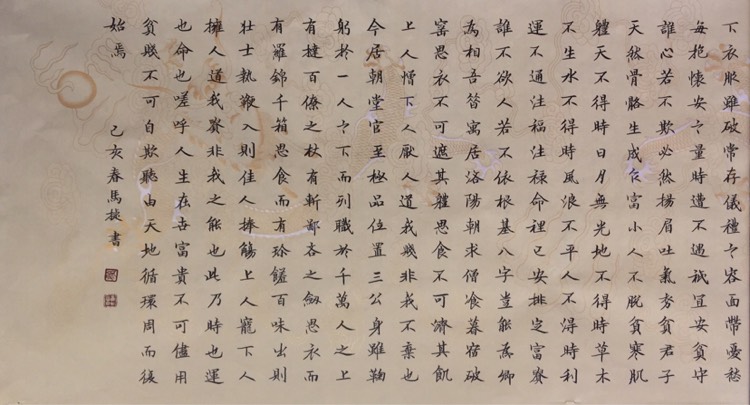 下衣服雖破常存儀禮之容面帶憂愁
每抱懷安之量時遭不遇祗宜安貧守
誰心若不欺必然揚眉吐氣貧君子
天然骨骼生成乍富小人不脫貧寒肌
體天不得時日月無光地不得時草木
不生水不得時風浪不平人不得時利
運不通注福注祿命裡已安排定富貴
誰不欲人若不依根基八字豈能為卿
為相吾昔寓居洛陽朝求僧食暮宿破
窑思衣不可遮其體思食不可濟其飢
上人憎下人厭人道我賤非我不棄也
今居朝堂官至極品位置三公身雖鞠
躬於一人之下而列職於千萬人之上
有撻百僚之杖有斬鄙吝之劍思衣而
有羅錦千箱思食而有珍饈百味出則
壯士執鞭入則佳人捧觴上人寵下人
擁人道我貴非我之能也此乃時也運
也命也嗟呼人生在世富貴不可儘用
貧賤不可自欺聽由天地循環周而復
始焉 己亥春馬書